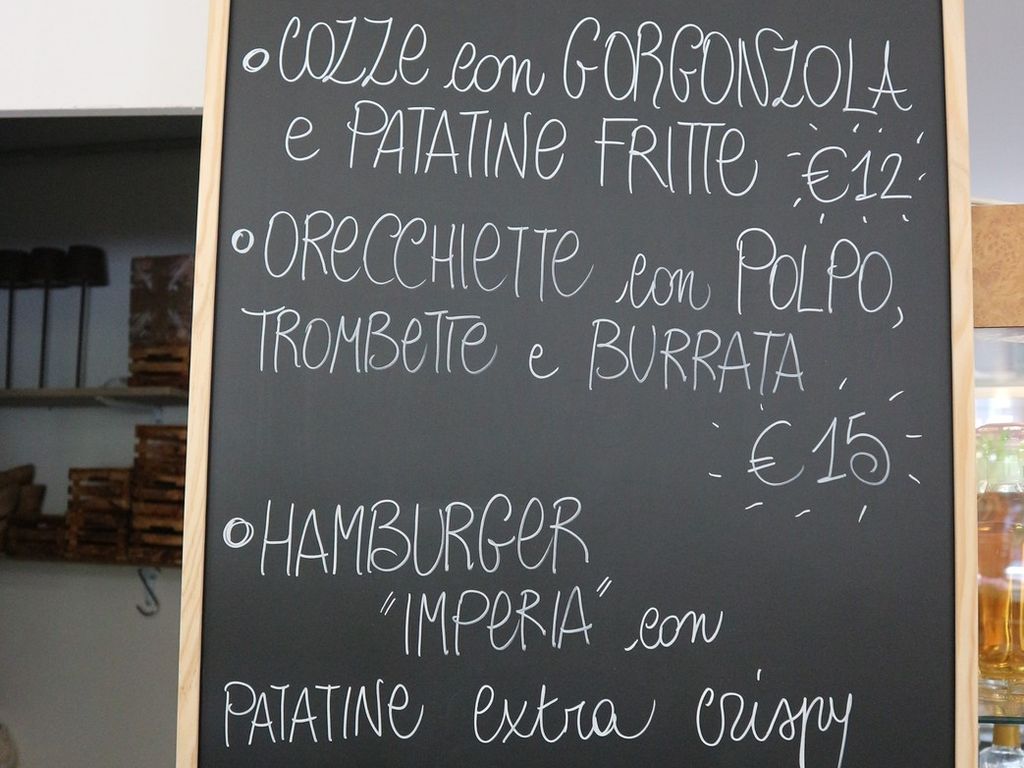 COZZE con GORGONZOLA
e PATATINE FRITTE €12
ORECCHIETTE con POLPO,
TROMBETTE e BURRATA
€15
HAMBURGER
"IMPERIA" con
PATATINE extra crispy